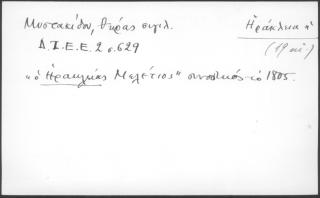 Μυστακίδου, θηρᾶς σιγιλ.
Ἡράκλεια
Δ.Ι.Ε.Ε. 2 σ. 629
(19 αἰ)
"ὁ Ἡρακλείας Μελέτιος" συνοδικὸς τὸ 1805.